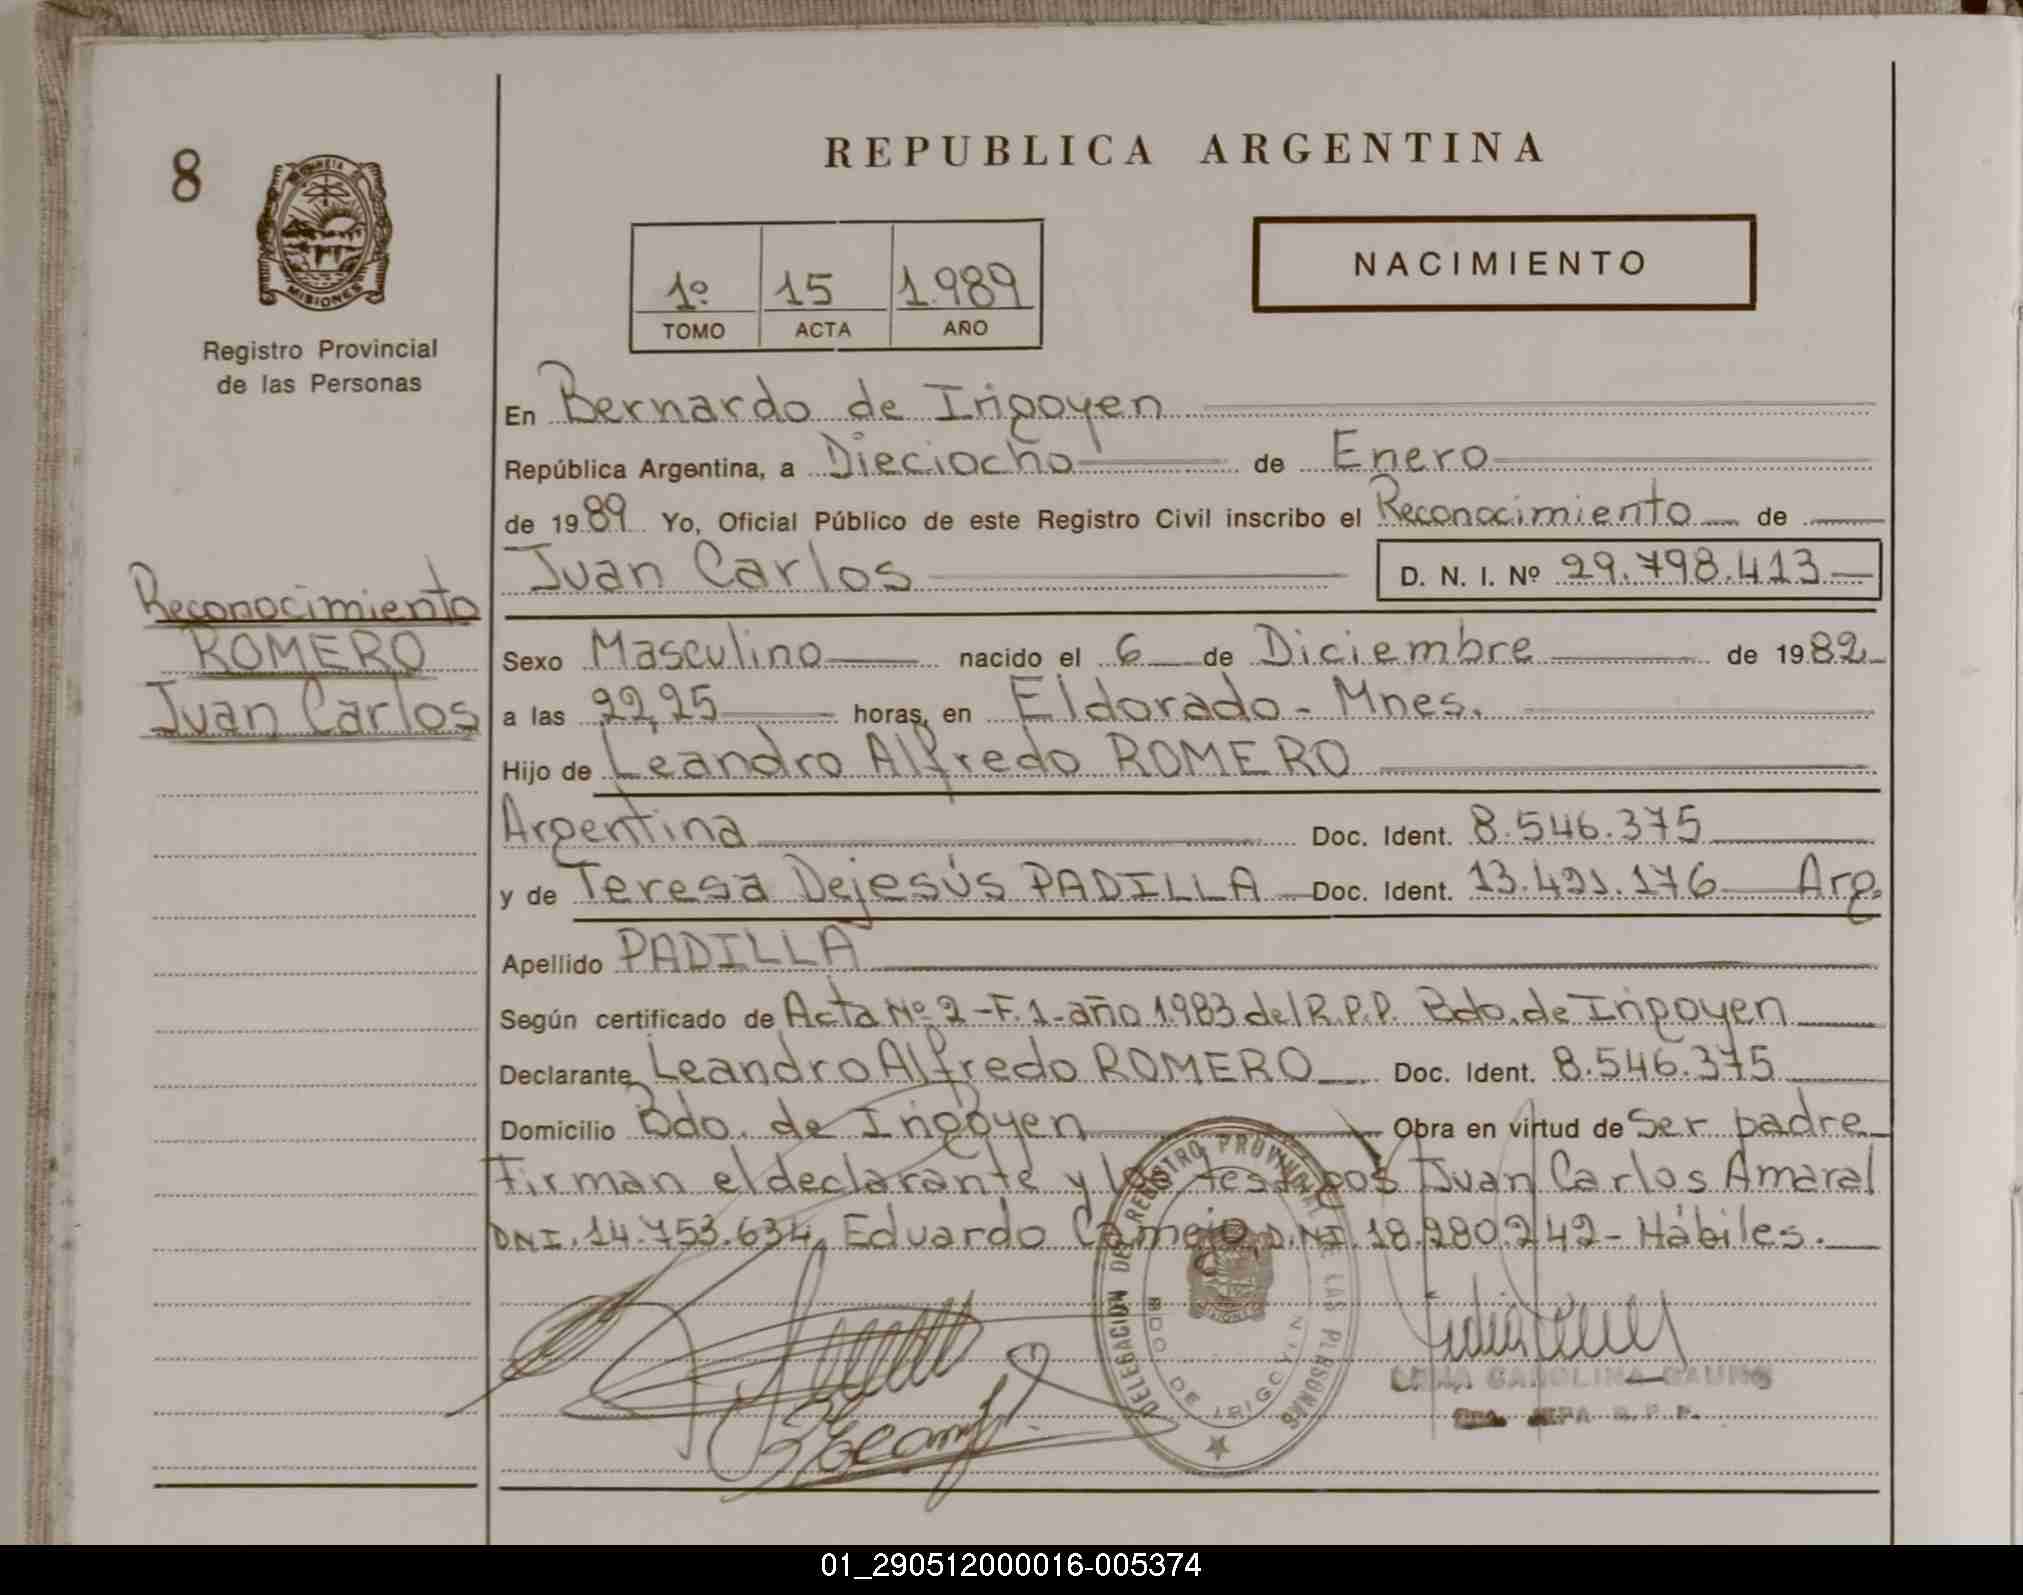 8
MISIONES
Registro Provincial
de las Personas
REPUBLICA ARGENTINA
1º 15 1.989
TOMO ACTA AÑO
NACIMIENTO
En Bernardo de Irigoyen
República Argentina, a Dieciocho de Enero
de 1989 Yo, Oficial Público de este Registro Civil inscribo el Reconocimiento de
Juan Carlos D. N. I. Nº 29.798.413
Reconocimiento
ROMERO
Juan Carlos
Sexo Masculino nacido el 6 de Diciembre de 1982
a las 22,25 horas, en Eldorado - Mnes.
Hijo de Leandro Alfredo ROMERO
Argentina Doc. Ident. 8.546.375
y de Teresa Dejesús PADILLA Doc. Ident. 13.421.176 Arg.
Apellido PADILLA
Según certificado de Acta Nº 2-F.1-año 1.983 del R.P.P. Bdo. de Irigoyen
Declarante Leandro Alfredo ROMERO Doc. Ident. 8.546.375
Domicilio Bdo. de Irigoyen Obra en virtud de ser padre
Firman el declarante y los testigos Juan Carlos Amaral
DNI. 14.753.634, Eduardo D.NI. 18.280.242 - Hábiles.
DELEGACION DEL REGISTRO PROVINCIAL DE LAS PERSONAS
BDO DE IRIGOYEN
CAROLINA
R.P.P.
01_290512000016-005374